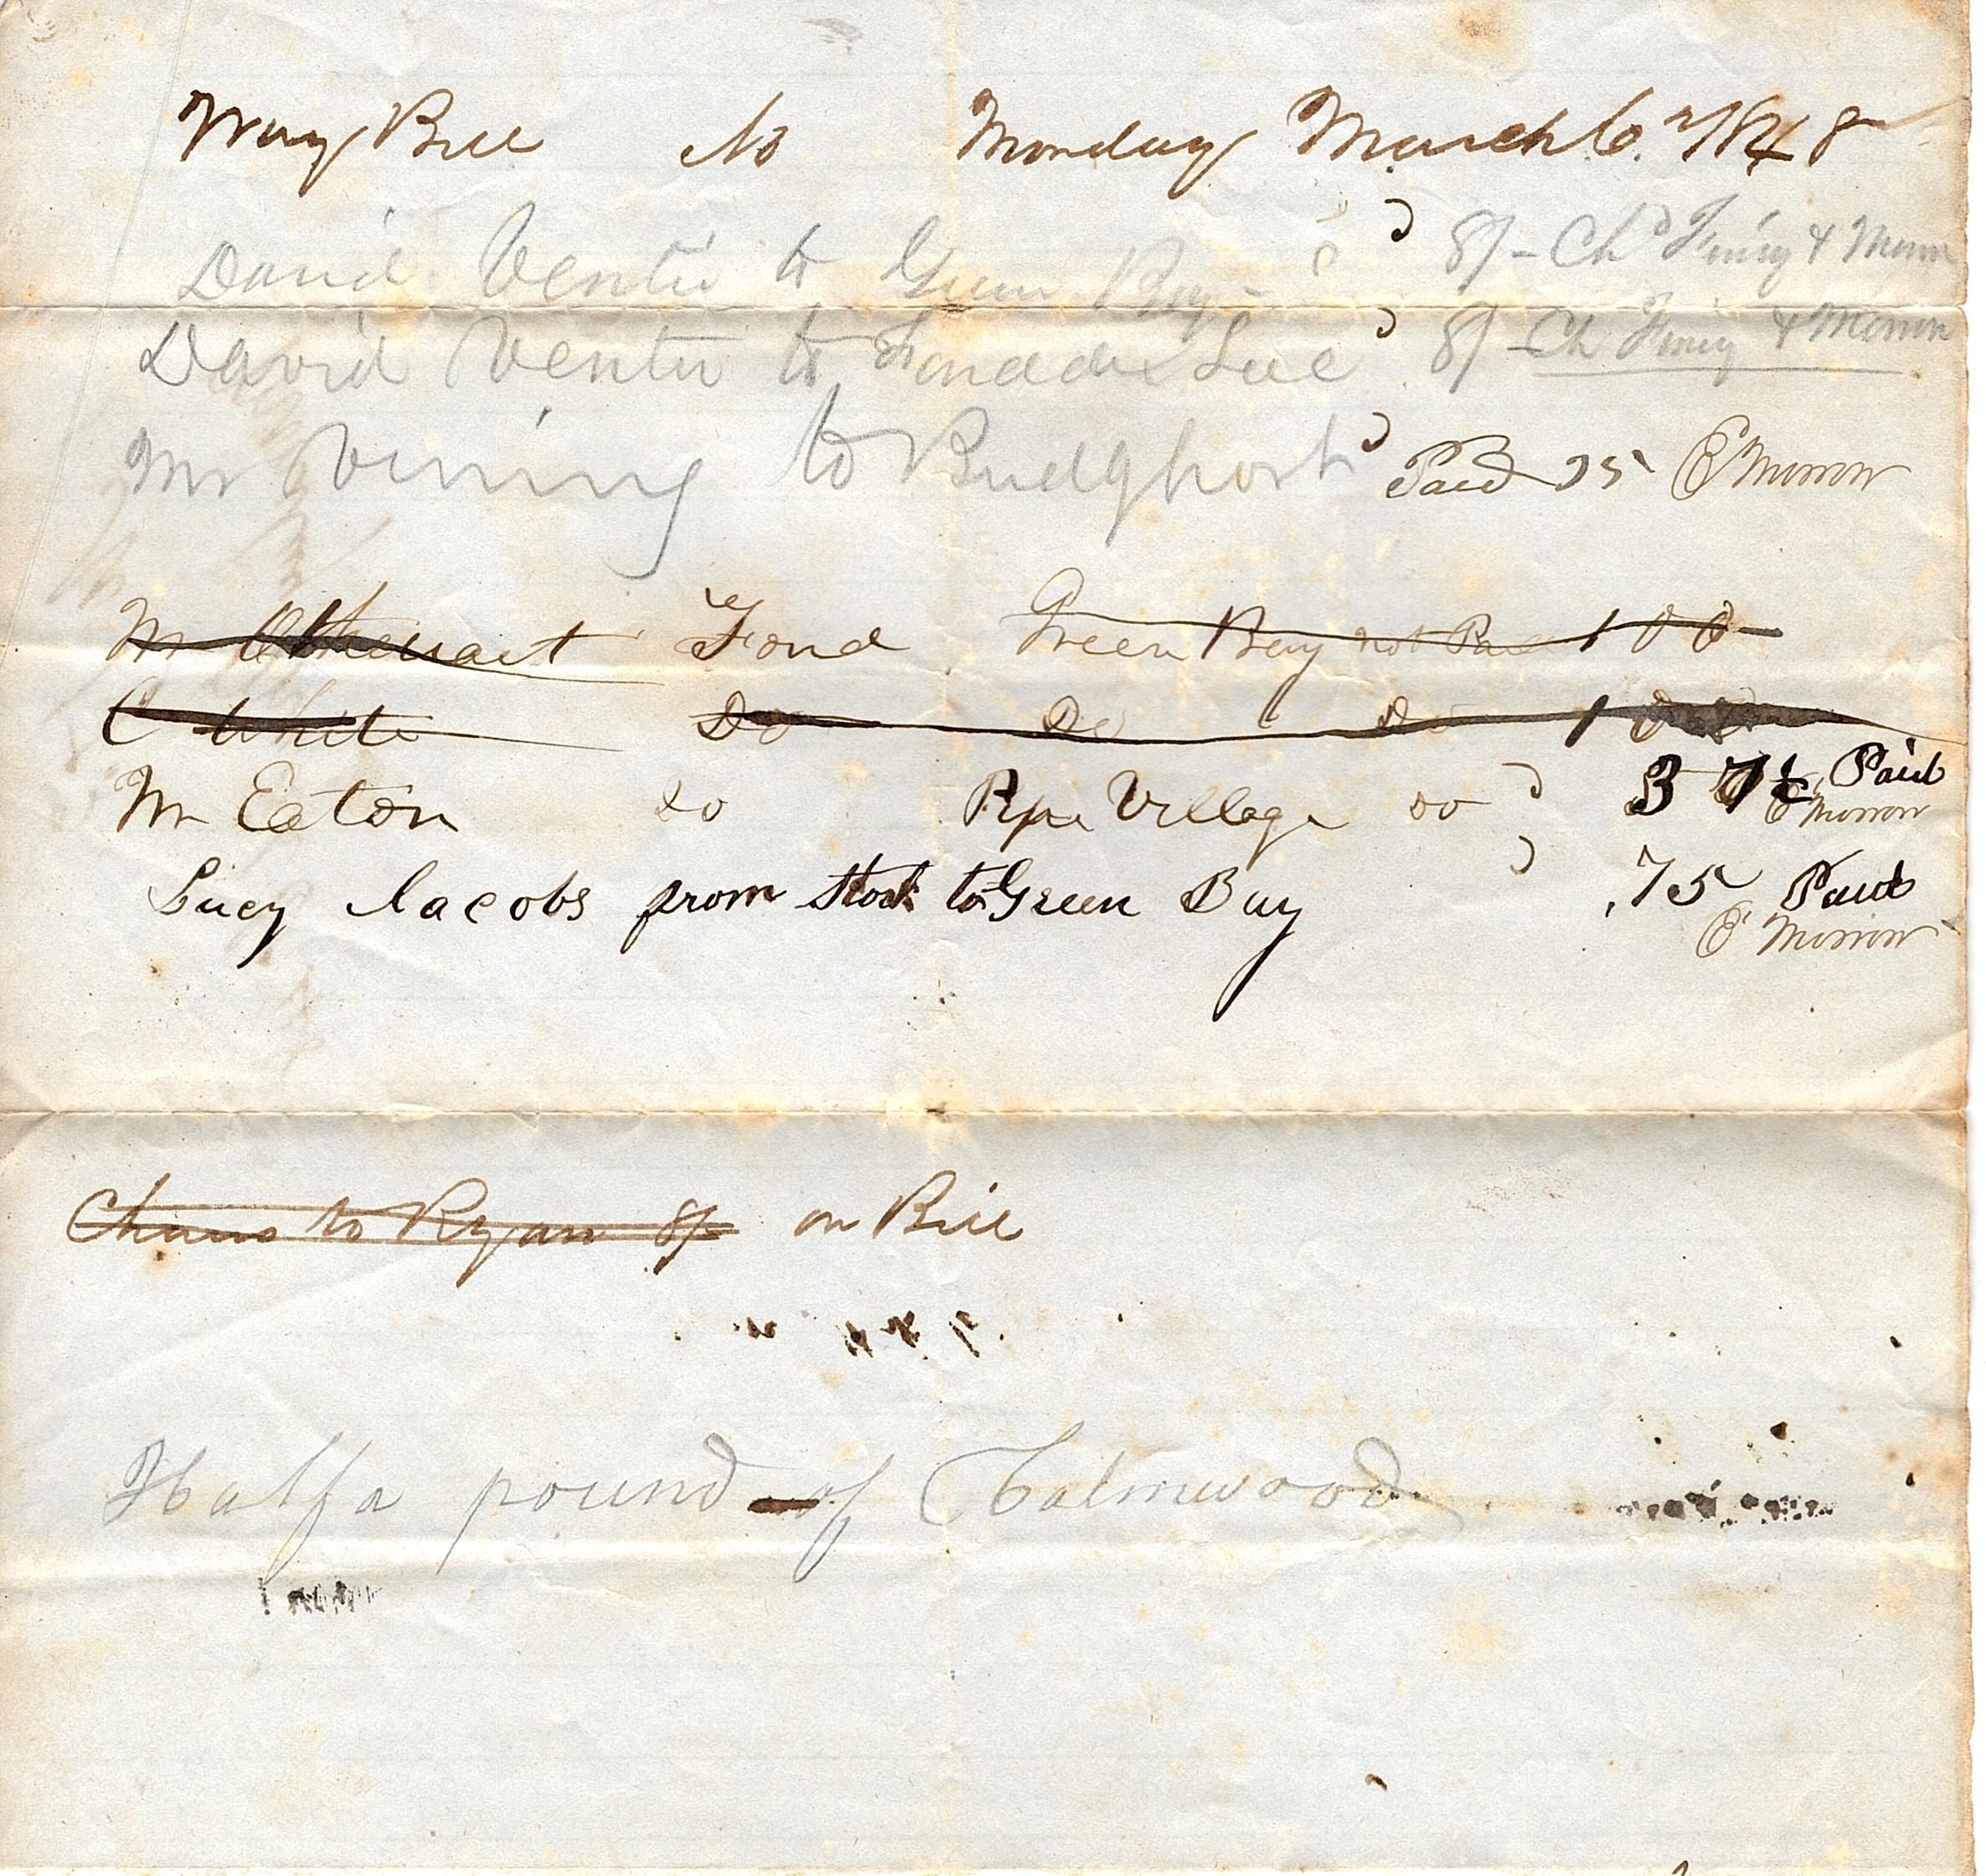 Way Bill No Monday March 6. 1848
David Venter to Green Bay - 8/- Chd Finiy & Morrow
David Venter to Fonddu Lac 8/- Ch Finiy & Morrow
Mr Vining to Budghort Paid 75 E Morrow
Mr Stewart Fond Green Bay not Paid 1 00
C White Do Do Do 1 00
Mr Eaton do Pipe Village do 37½ Paid
E Morrow
Lucy Jacobs from Stock to Green Bay .75 Paid
E Morrow
to Ryan 8/- on Bill
Half a pound of